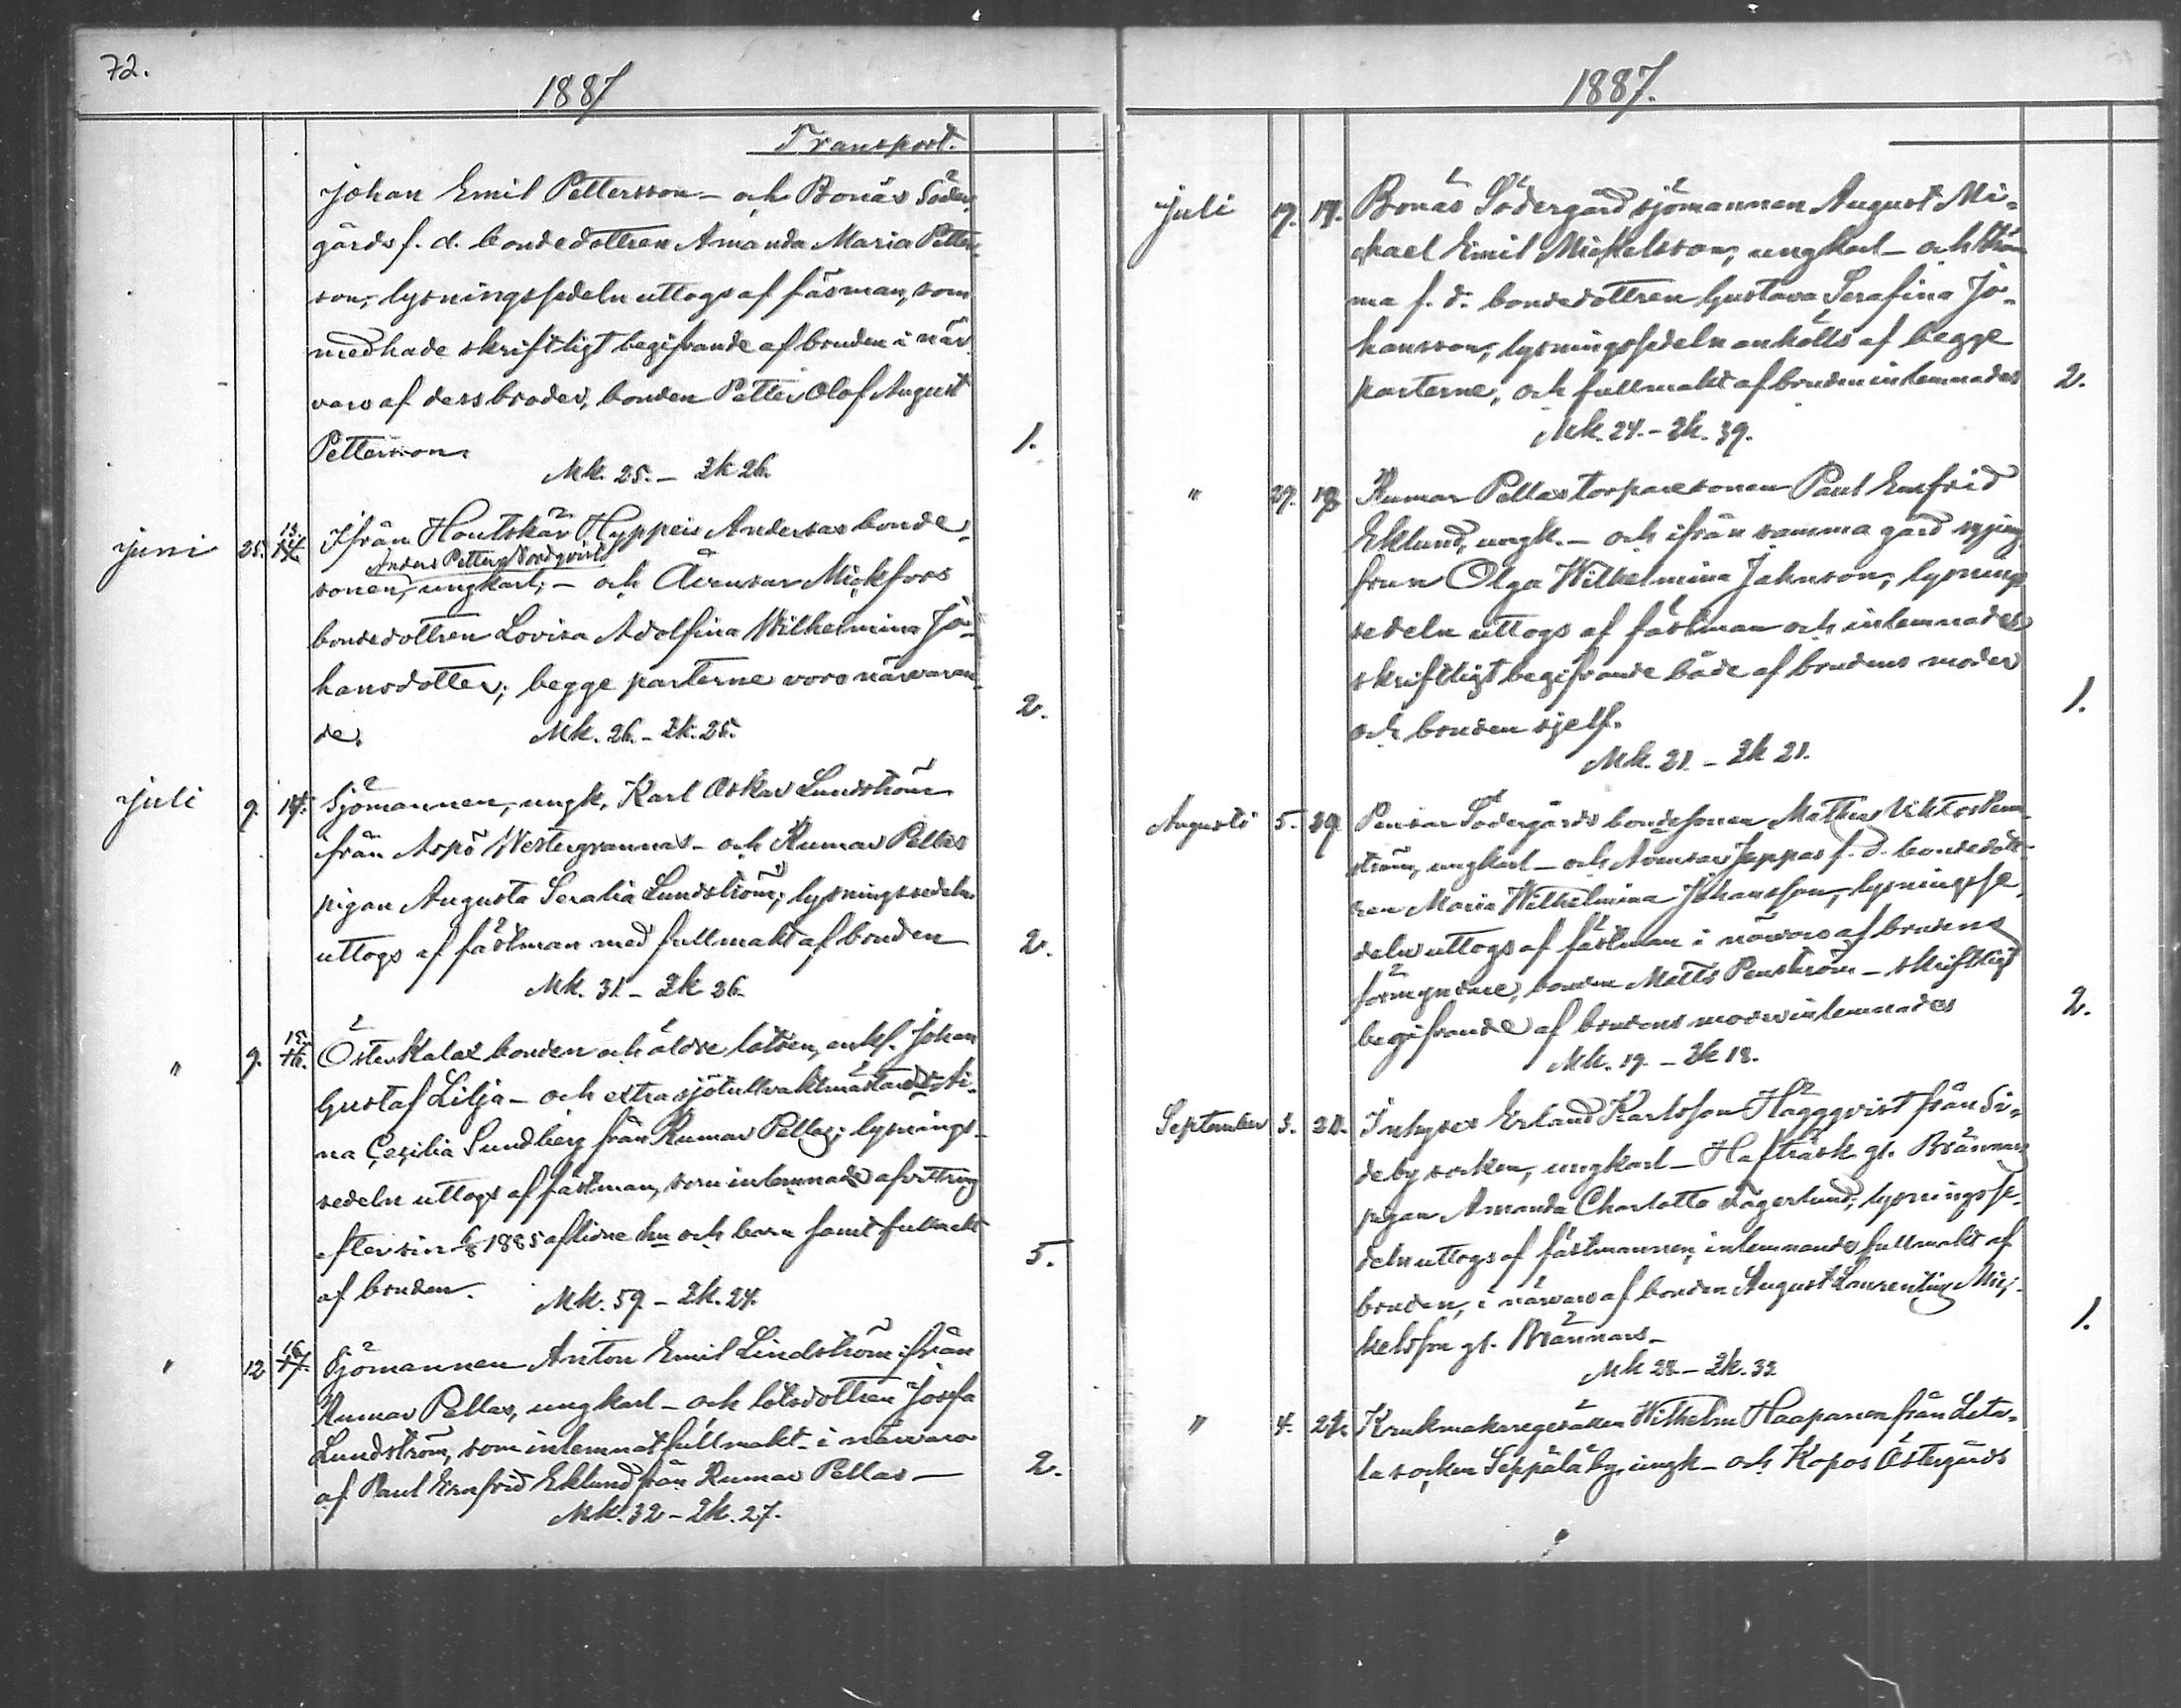 72.
1887
Transport.
Johan Emil Pettersson – och Bonäs Söder,
gårds f. d. bondedottren Amanda Maria Petters,
son; lysningssedeln uttogs af fäsman, som
medhade skriftligt begifvande af bruden i när
varo af dess broder, bonden Petter Olof August
Pettersson.
1.
Mk. 25. – Qk 26.
juni 25. 13. Ifrån Houtskär Hyppeis Andersas bonde,
Anders Petter Nordqvist
sonen, ungkarl; – och Åvensar Mickfors
bondedottren Lovisa Adolfina Wilhelmina Jo-
hansdotter; begge parterne voro närvaran,
de.
2.
Mk. 26. – Qk. 25.
juli 9. 14. Sjömannen, ungk. Karl Oskar Lundström
ifrån Aspö Westergrannas – och Rumar Pellas
pigan Augusta Seralia Lundström; lysningssedeln
uttogs af fästman med fullmakt af bruden
2.
Mk. 31. – Qk 26.
" 9. 15. Öster Kalax bonden och äldre lotsen, enkl. Johan
Gustaf Lilja – och extra sjötullvaktmästaredt. Ai,
na Cecilia Sundberg från Rumar Pellas; lysnings-
sedeln uttogs af fästman, som inlemnade afvittring
efter sin 1885 aflidne hu och barn samt fullmakt
af bruden.
5.
Mk. 59. – Qk. 24.
" 12 16. Sjömannen Anton Emil Lindström ifrån
Rumar Pellas, ungkarl – och lotsdottren Josefa
Lundström, som inlemnat fullmakt i närvaro
af Paul Ernfrid Eklund från Rumar Pellas –
2.
Mk. 32 – Qk. 27.
1887.
juli 17. 17. Bonäs Södergård sjömannen August Mi,
chael Emil Mickelsson, ungkarl – och
ma f. d. bondedottren Gustava Serafina Jo,
hansson; lysningssedeln anhölls af begge
parterne, och fullmakt af bruden inlemnades
2.
Mk. 24. – Qk. 39.
" 29. 18. Rumar Pellas torparesonen Paul Ernfrid
Eklund, ungk. – och ifrån samma gård
frun Olga Wilhelmina Jahnson; lysnings
sedeln uttogs af fästman och inlemnades
skriftligt begifvande både af brudens moder
och bruden sjelf.
1.
Mk. 21. – Qk 21.
Augusti 5. 19 Pensar Södergårds bondesonen Mathias Viktor Pen
ström, ungkarl – och Avensar Jeppas f. d. bondedott-
ren Maria Wilhelmina Johansson; lysningsse,
deln uttogs af fästman i närvaro af brudens
förmyndare, bonden Matts Penström – skriftligt
begifvande af brudens moder inlemnades
2.
Mk. 19. – Qk 18.
September 3. 20. Inhyses Erland Karlsson Häggqvist från Si,
deby socken, ungkarl – Hafträsk gl. Brännars
pigan Amanda Charlotta Sägerlund; lysningsse,
deln uttogs af fästmannen, inlemnande fullmakt af
bruden, i närvaro af bonden August Laurentius Mic,
kelsson gl. Brännars –
1.
Mk 28 – Qk. 32
" 4. 21. Krukmakaregesällen Wilhelm Haapanen från Leta,
la socken Seppälä by, ungk – och Kopos Östergårds